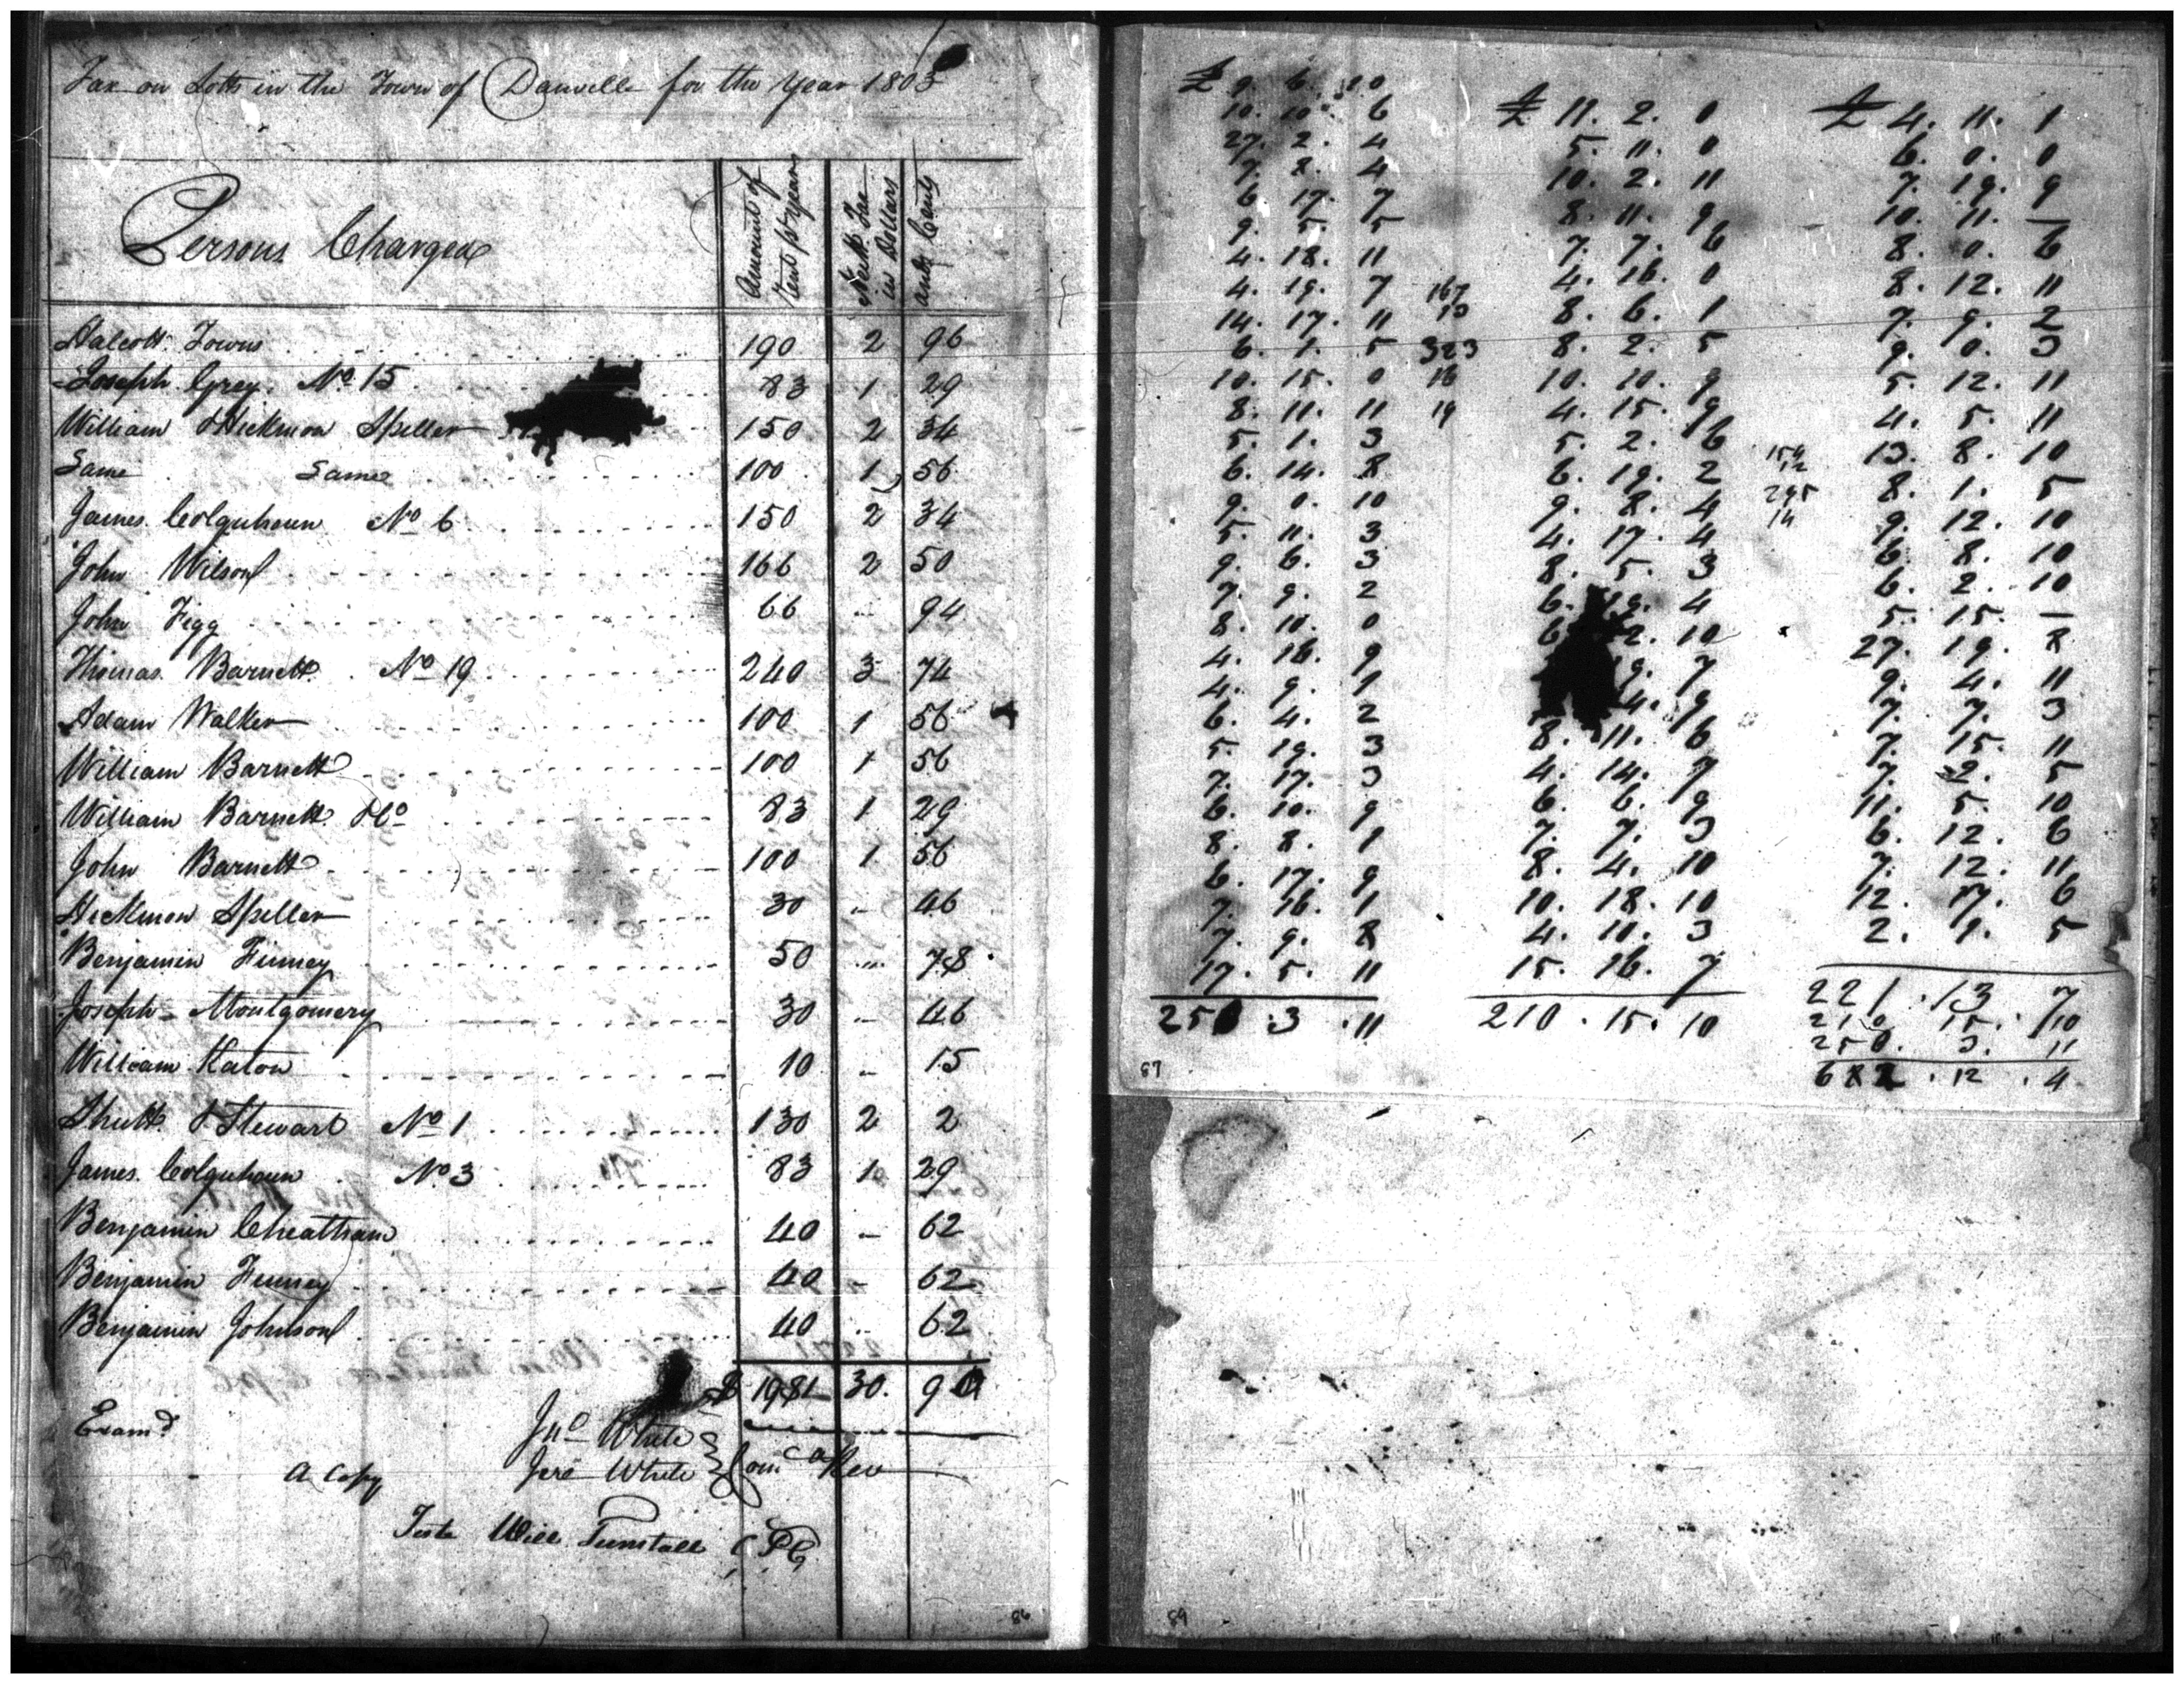 Tax on Lotts in the Town of Danville for the Year 1803
Persons Charged
Amount of
Rent pr Year
Neett Tax
in Dollars
and Cents
Halcott Towns 190 2 96
Joseph Grey No 15 83 1 29
William & Hickmon Speller 150 2 34
Same Same 100 1 56
James Colquhoun No 6 150 2 34
John Wilson 166 2 50
John Figg 66 " 94
Thomas Barnett No 19 240 3 74
Adam Walker 100 1 56
William Barnett 100 1 56
William Barnett & Co 83 1 29
John Barnett 100 1 56
Hickmon Speller 30 " 46
Benjamin Finney 50 " 78
Joseph Montgomery 30 " 46
William Katon 10 " 15
Shutt & Stewart No 1 130 2 2
James Colquhoun No 3 83 1 29
Benjamin Cheatham 40 " 62
Benjamin Finney 40 " 62
Benjamin Johnson 40 " 62
1981 30. 9
Examd
Jno White
Jere White } Comrs Rev
A Copy
Teste Will Tunstall CPC
86
£ 9. 6. 10
10. 10. 6
27. 2. 4
7. 8. 4
6. 17. 7
9. 5. 5
4. 18. 11
4. 19. 7
14. 17. 11
6. 1. 5
10. 15. 0
8. 11. 11
5. 1. 3
6. 14. 8
9. 0. 10
5. 11. 3
9. 6. 3
7. 9. 2
8. 10. 0
4. 16. 9
4. 9. 1
6. 4. 2
5. 19. 3
7. 17. 3
6. 10. 9
8. 8. 1
6. 17. 9
7. 16. 1
7. 9. 8
17. 5. 11
250 . 3 . 11
167
13
323
16
19
£ 11. 2. 0
5. 11. 0
10. 2. 11
8. 11. 9
7. 7. 6
4. 16. 0
8. 6. 1
8. 2. 5
10. 10. 9
4. 15. 9
5. 2. 6
6. 19. 2
9. 8. 4
4. 17. 4
8. 5. 3
6. 19. 4
6. 2. 10
9. 7
4. 9
8. 11. 6
4. 14. 7
6. 6. 9
7. 7. 3
8. 4. 10
10. 18. 10
4. 10. 3
15. 16. 7
210 . 15. 10
154
12
295
14
£ 4. 11. 1
6. 0. 0
7. 19. 9
10. 11. —
8. 0. 6
8. 12. 11
7. 9. 2
9. 0. 3
5. 12. 11
4. 5. 11
13. 8. 10
8. 1. 5
9. 12. 10
6. 8. 10
6. 2. 10
5. 15. —
27. 19. 8
9. 4. 11
7. 7. 3
7. 15. 11
7. 2. 5
11. 5. 10
6. 12. 6
7. 12. 11
12. 17. 6
2. 1. 5
221 . 13 7
210 15. 10
250. 3. 11
682 . 12 . 4
87
89